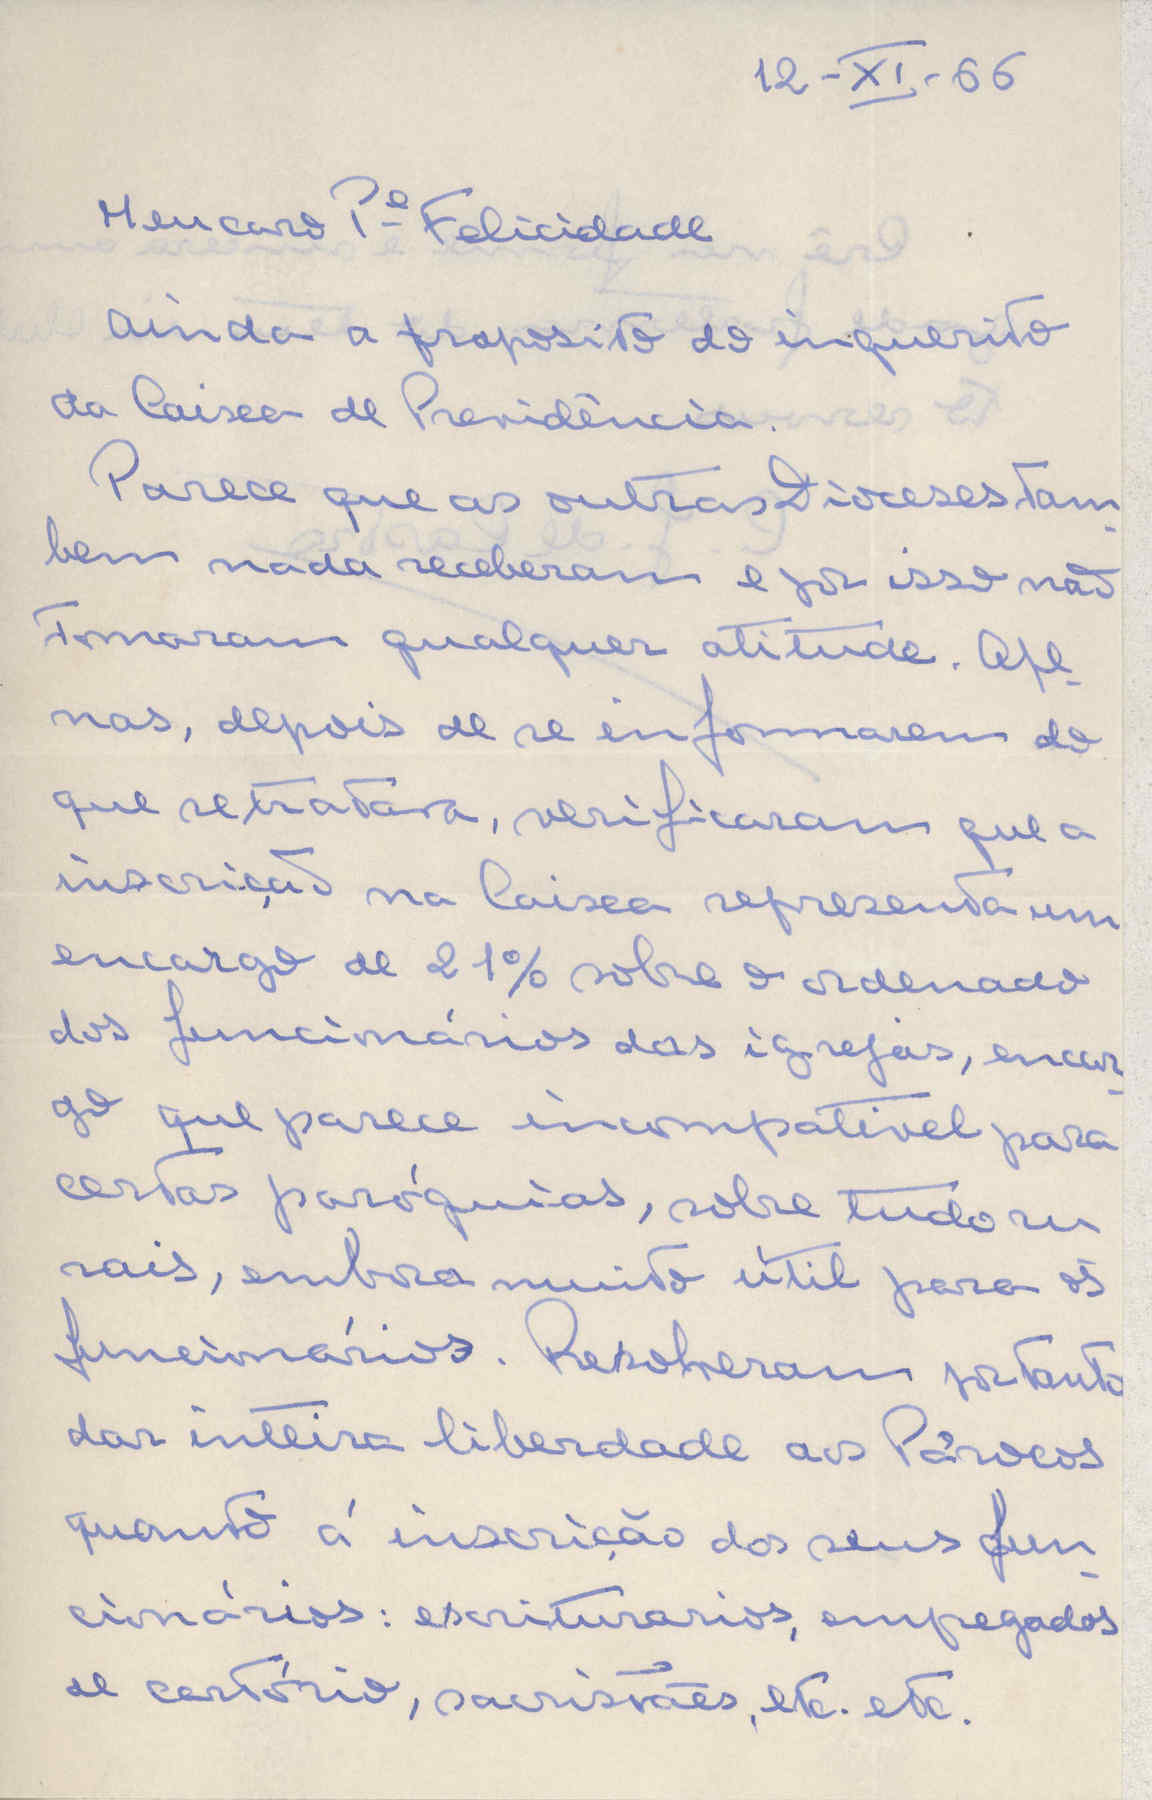 12-XI-66
Meu caro P.e Felicidade
Ainda a proposito do inquerito
da Caixa de Previdência.
Parece que as outras Dioceses tam-
bem nada receberam e por isso não
tomaram qualquer atitude. Ape-
nas, depois de se informarem do
que se tratava, verificaram que a
inscrição na Caixa representa um
encargo de 21% sobre o ordenado
dos funcionários das igrejas, encar-
go que parece incompativel para
certas paróquias, sobre tudo ru
rais, embora muito útil para os
funcionários. Resolveram portanto
dar inteira liberdade aos Párocos
quanto á inscrição dos seus fun-
cionários: escriturarios, empegados
de cartório, sacristães, etc. etc.